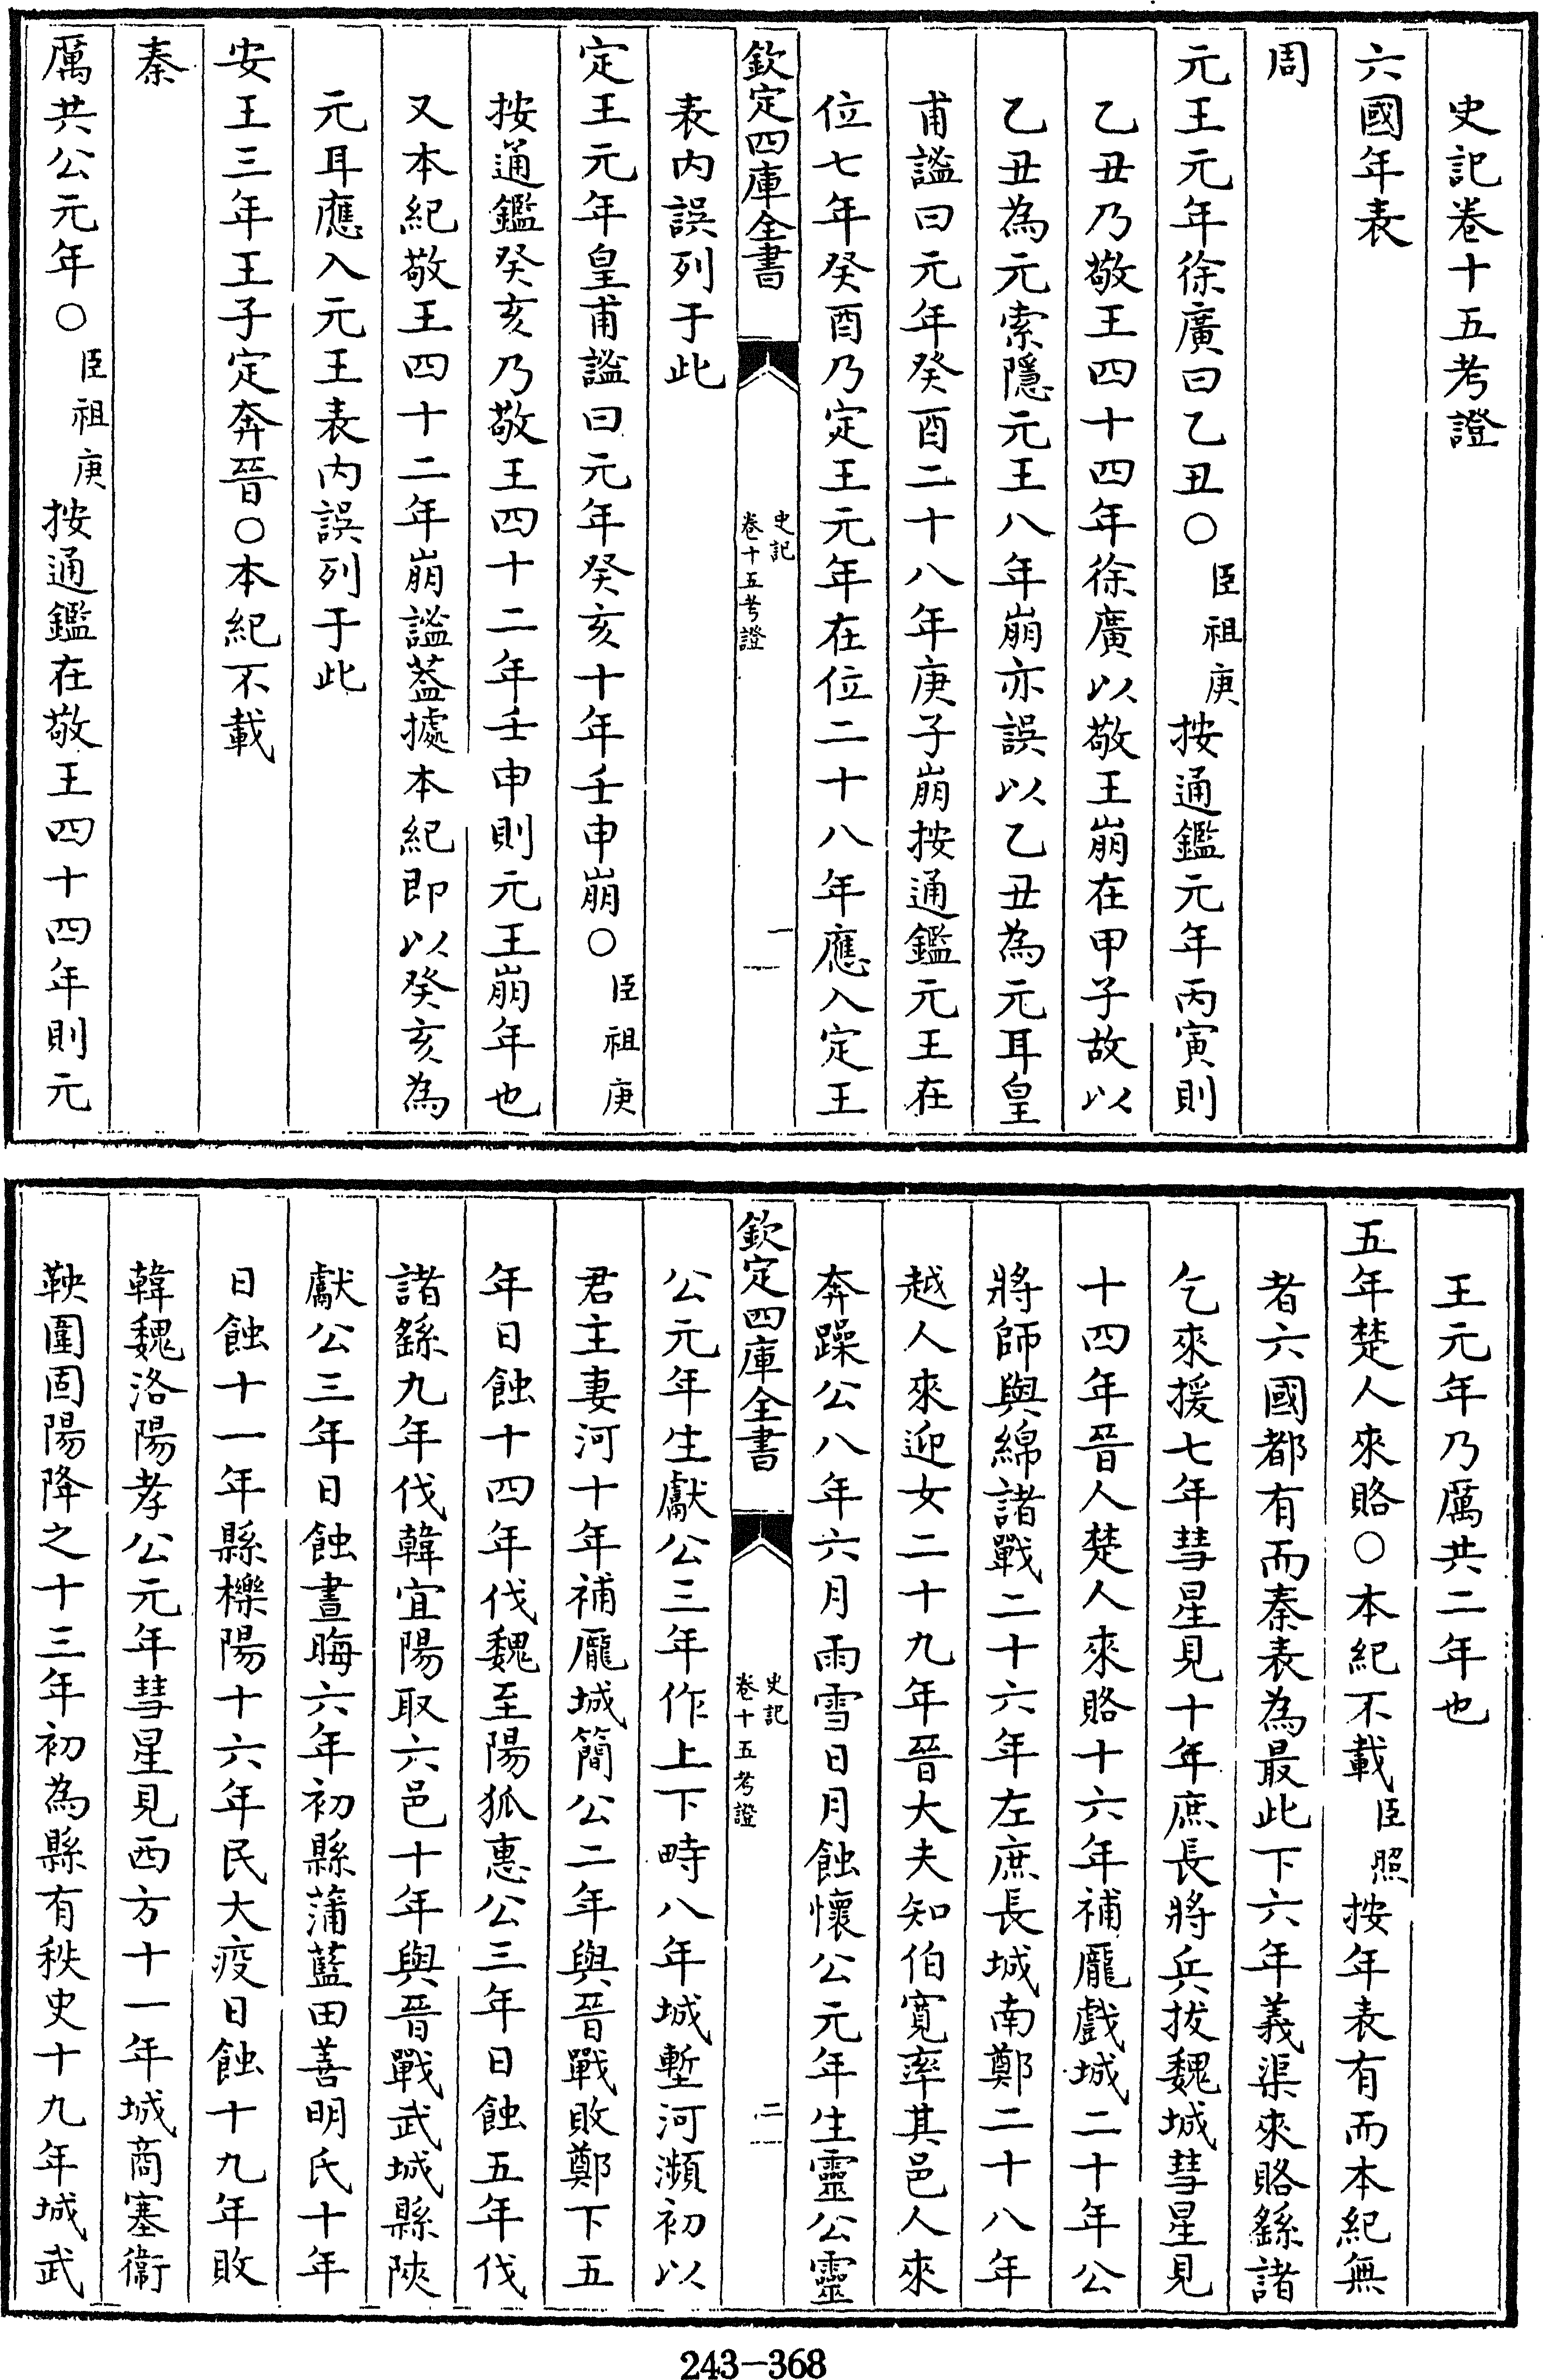 史記卷十五考證
六國年表
周
元王元年徐廣曰乙丑○臣祖庚按通鑑元年丙寅則
乙丑乃敬王四十四年徐廣以敬王崩在甲子故以
乙丑為元索隱元王八年崩亦誤以乙丑為元耳皇
甫謐曰元年癸酉二十八年庚子崩按通鑑元王在
位七年癸酉乃定王元年在位二十八年應入定王
欽定四庫全書
史記
卷十五考證
一
表内誤列于此
定王元年皇甫謐曰元年癸亥十年壬申崩○臣祖庚
按通鑑癸亥乃敬王四十二年壬申則元王崩年也
又本紀敬王四十二年崩謐葢據本紀即以癸亥為
元耳應入元王表内誤列于此
安王三年王子定奔晉○本紀不載
秦
厲共公元年○臣祖庚按通鑑在敬王四十四年則元
王元年乃厲共二年也
五年楚人來賂○本紀不載臣照按年表有而本紀無
者六國都有而秦表為最此下六年義渠來賂繇諸
乞來援七年彗星見十年庶長將兵拔魏城彗星見
十四年晉人楚人來賂十六年補龎戲城二十年公
將師與綿諸戰二十六年左庶長城南鄭二十八年
越人來迎女二十九年晉大夫知伯寛率其邑人來
奔躁公八年六月雨雪日月蝕懷公元年生靈公靈
欽定四庫全書
史記
卷十五考證
二
公元年生獻公三年作上下畤八年城塹河瀕初以
君主妻河十年補龎城簡公二年與晉戰敗鄭下五
年日蝕十四年伐魏至陽狐惠公三年日蝕五年伐
諸繇九年伐韓宜陽取六邑十年與晉戰武城縣陜
獻公三年日蝕晝晦六年初縣蒲藍田善明氏十年
日蝕十一年縣櫟陽十六年民大疫日蝕十九年敗
韓魏洛陽孝公元年彗星見西方十一年城商塞衞
鞅圍固陽降之十三年初為縣有秩史十九年城武
243-368